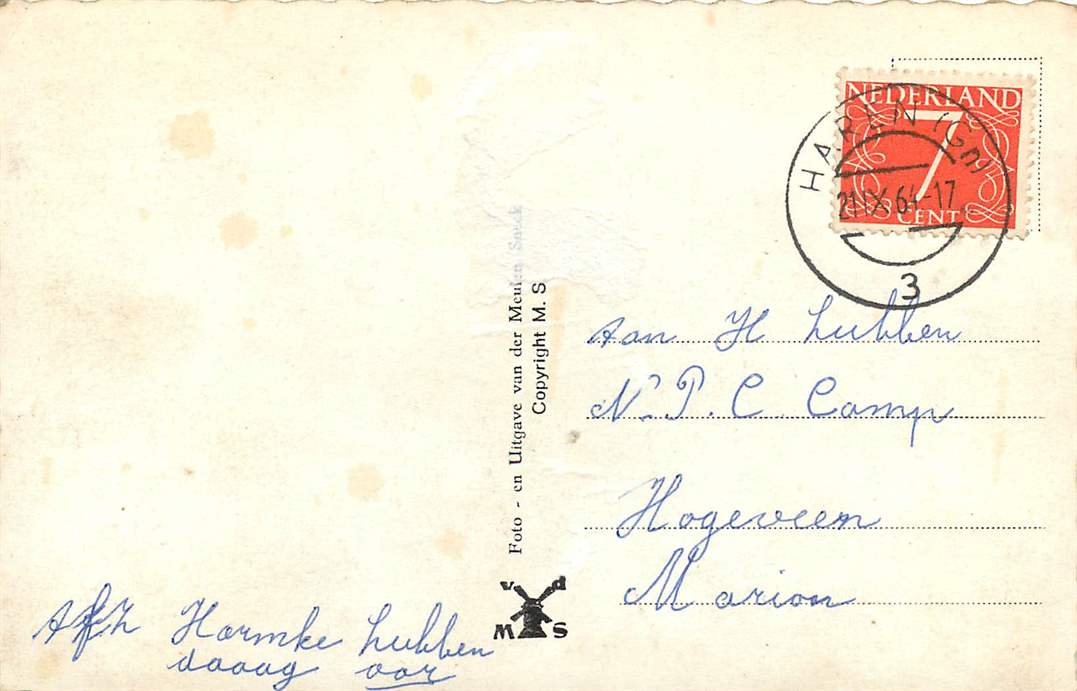 NEDERLAND
7
CENT
HAREN (Gn)
21 IX 64-17
3
Foto - en Uitgave van der Meulen Sneek
Copyright M. S
v d
M S
Aan H Lubben
N. P. C. Camp
Hogeveen
Marion
Afz Harmke Lubben
daaag oor